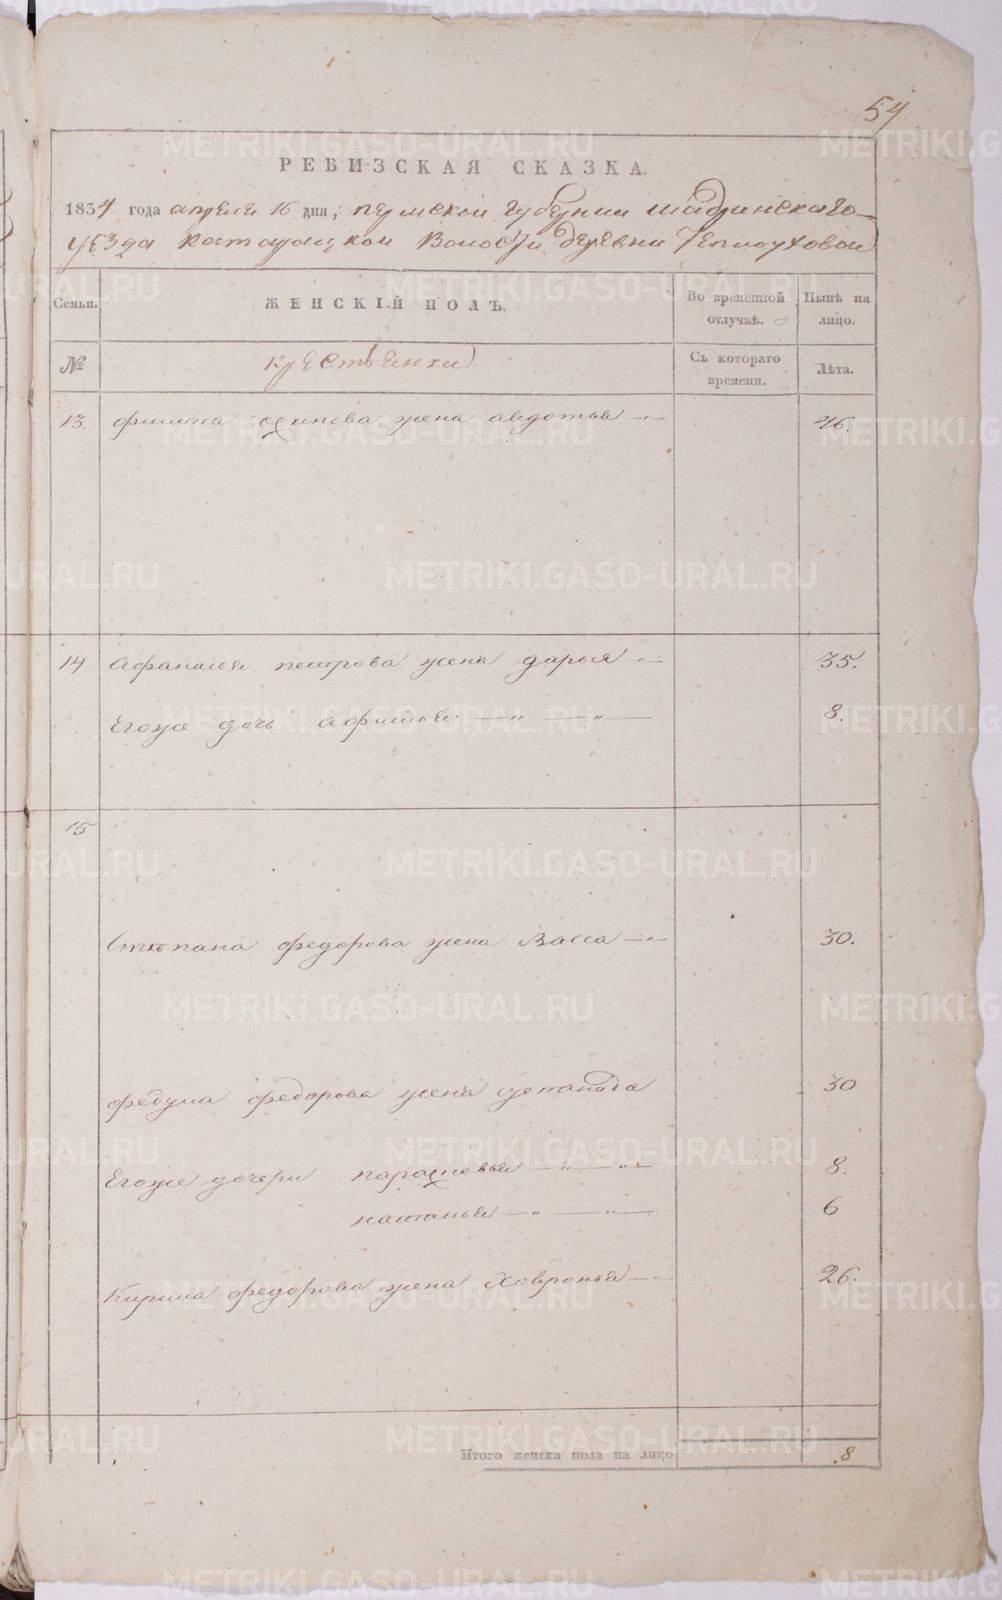 54
РЕВИЗСКАЯ СКАЗКА.
1834 года апреля 16 дня, пермской губернии шадринскаго
уезда волости деревни Теплоуховой
Семьи. ЖЕНСКІЙ ПОЛЪ. Во временной отлучкѣ. Нынѣ на лицо.
№ крестьянки Съ котораго времени. Лѣта.
13. филипа осипова жена авдотья 46.
14 Афанасья петрова жена дарья 35.
Егоже дочь афимья 8.
15
Степана федорова жена Васса 30.
федула федорова жена степанида 30
Егоже дочери парасковья 8.
наталья 6
Кирила федорова жена Хавронья 26.
Итого женска пола на лицо 8
METRIKI.GASO-URAL.RU